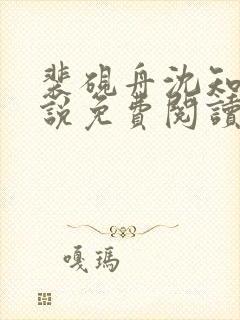 裴硯舟沈知
說免費閱讀
嘎瑪